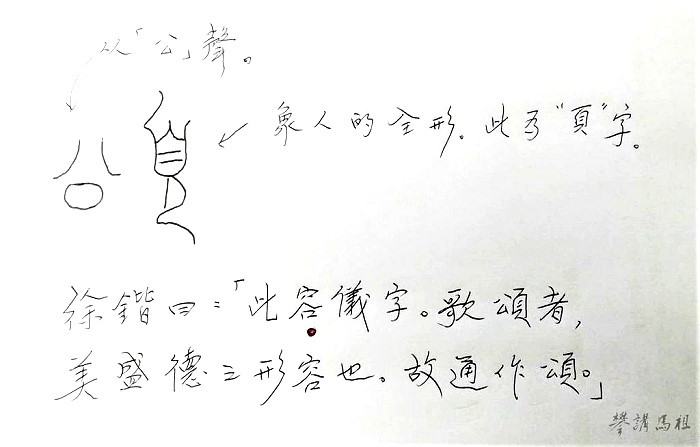 从「公」聲。
象人的全形。此乃"頁"字。
徐鍇曰:「此容儀字。歌頌者,
美盛德之形容也。故通作頌。」
攀講馬祖